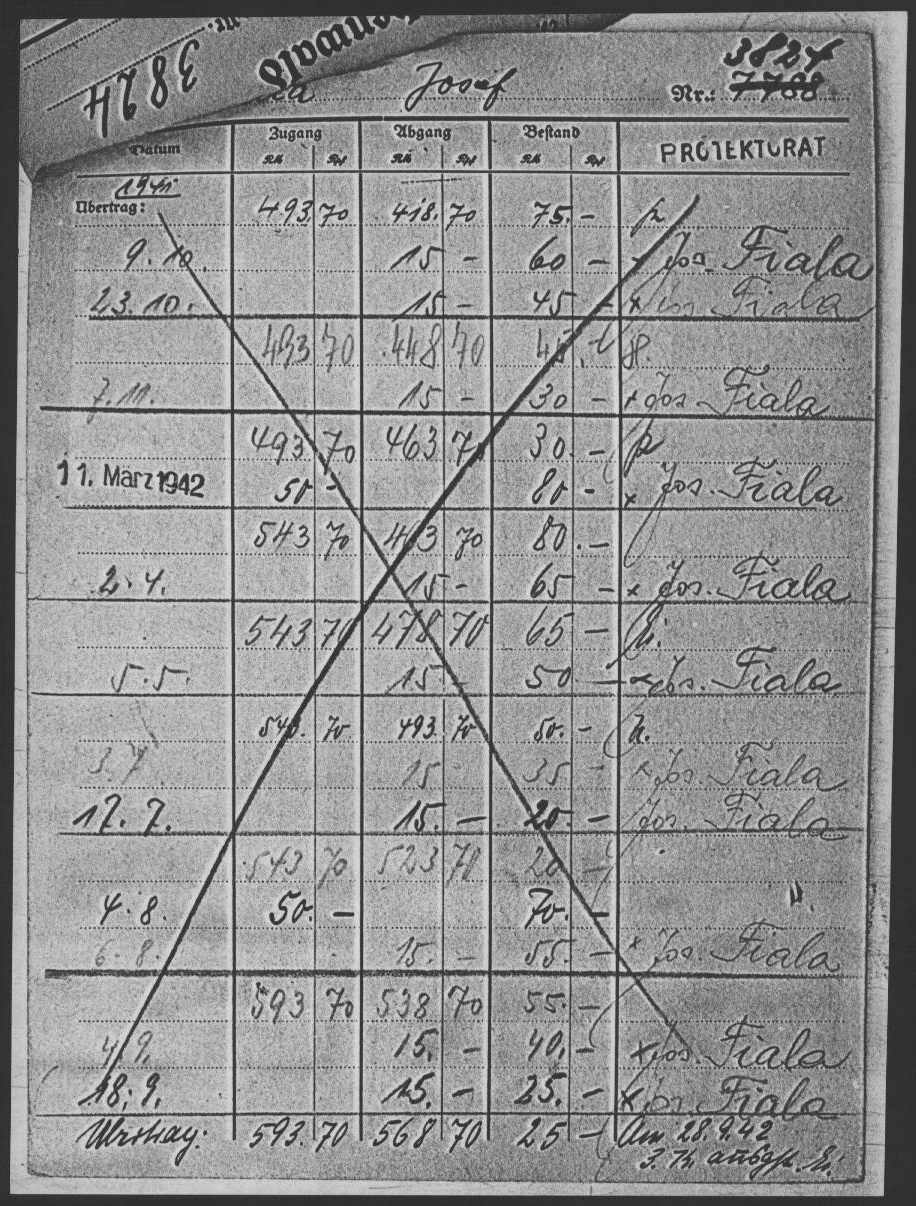 3824
Josef Nr.: 7788 3824
Datum Zugang Abgang Bestand PROTEKTORAT
RM Rpf RM Rpf RM Rpf
1941
Übertrag: 493. 70 418. 70 75. - p
9. 10. 15 - 60 - x Jos. Fiala
23. 10. 15 - 45 - x Jos. Fiala
493 70 448 70 45. -
7. 11. 15 - 30 - x Jos. Fiala
493 70 463 70 30. - p
11. März 1942 50 - 80 - x Jos. Fiala
543 70 463 70 80. -
2. 4. 15 - 65 - x Jos. Fiala
543 70 478 70 65 -
5. 5. 15 - 50 - x Jos. Fiala
543. 70 493. 70 50. -
3. 7. 15 - 35 - x Jos. Fiala
17. 7. 15. - 20. - Jos. Fiala
543 70 523 70 20 -
4. 8. 50. - 70. -
6. 8. 15. - 55. - x Jos. Fiala
593 70 538 70 55. -
4. 9. 15. - 40. - x Jos. Fiala
18. 9. 15. - 25. - x Jos. Fiala
593. 70 568 70 25 - Am 28.9.42